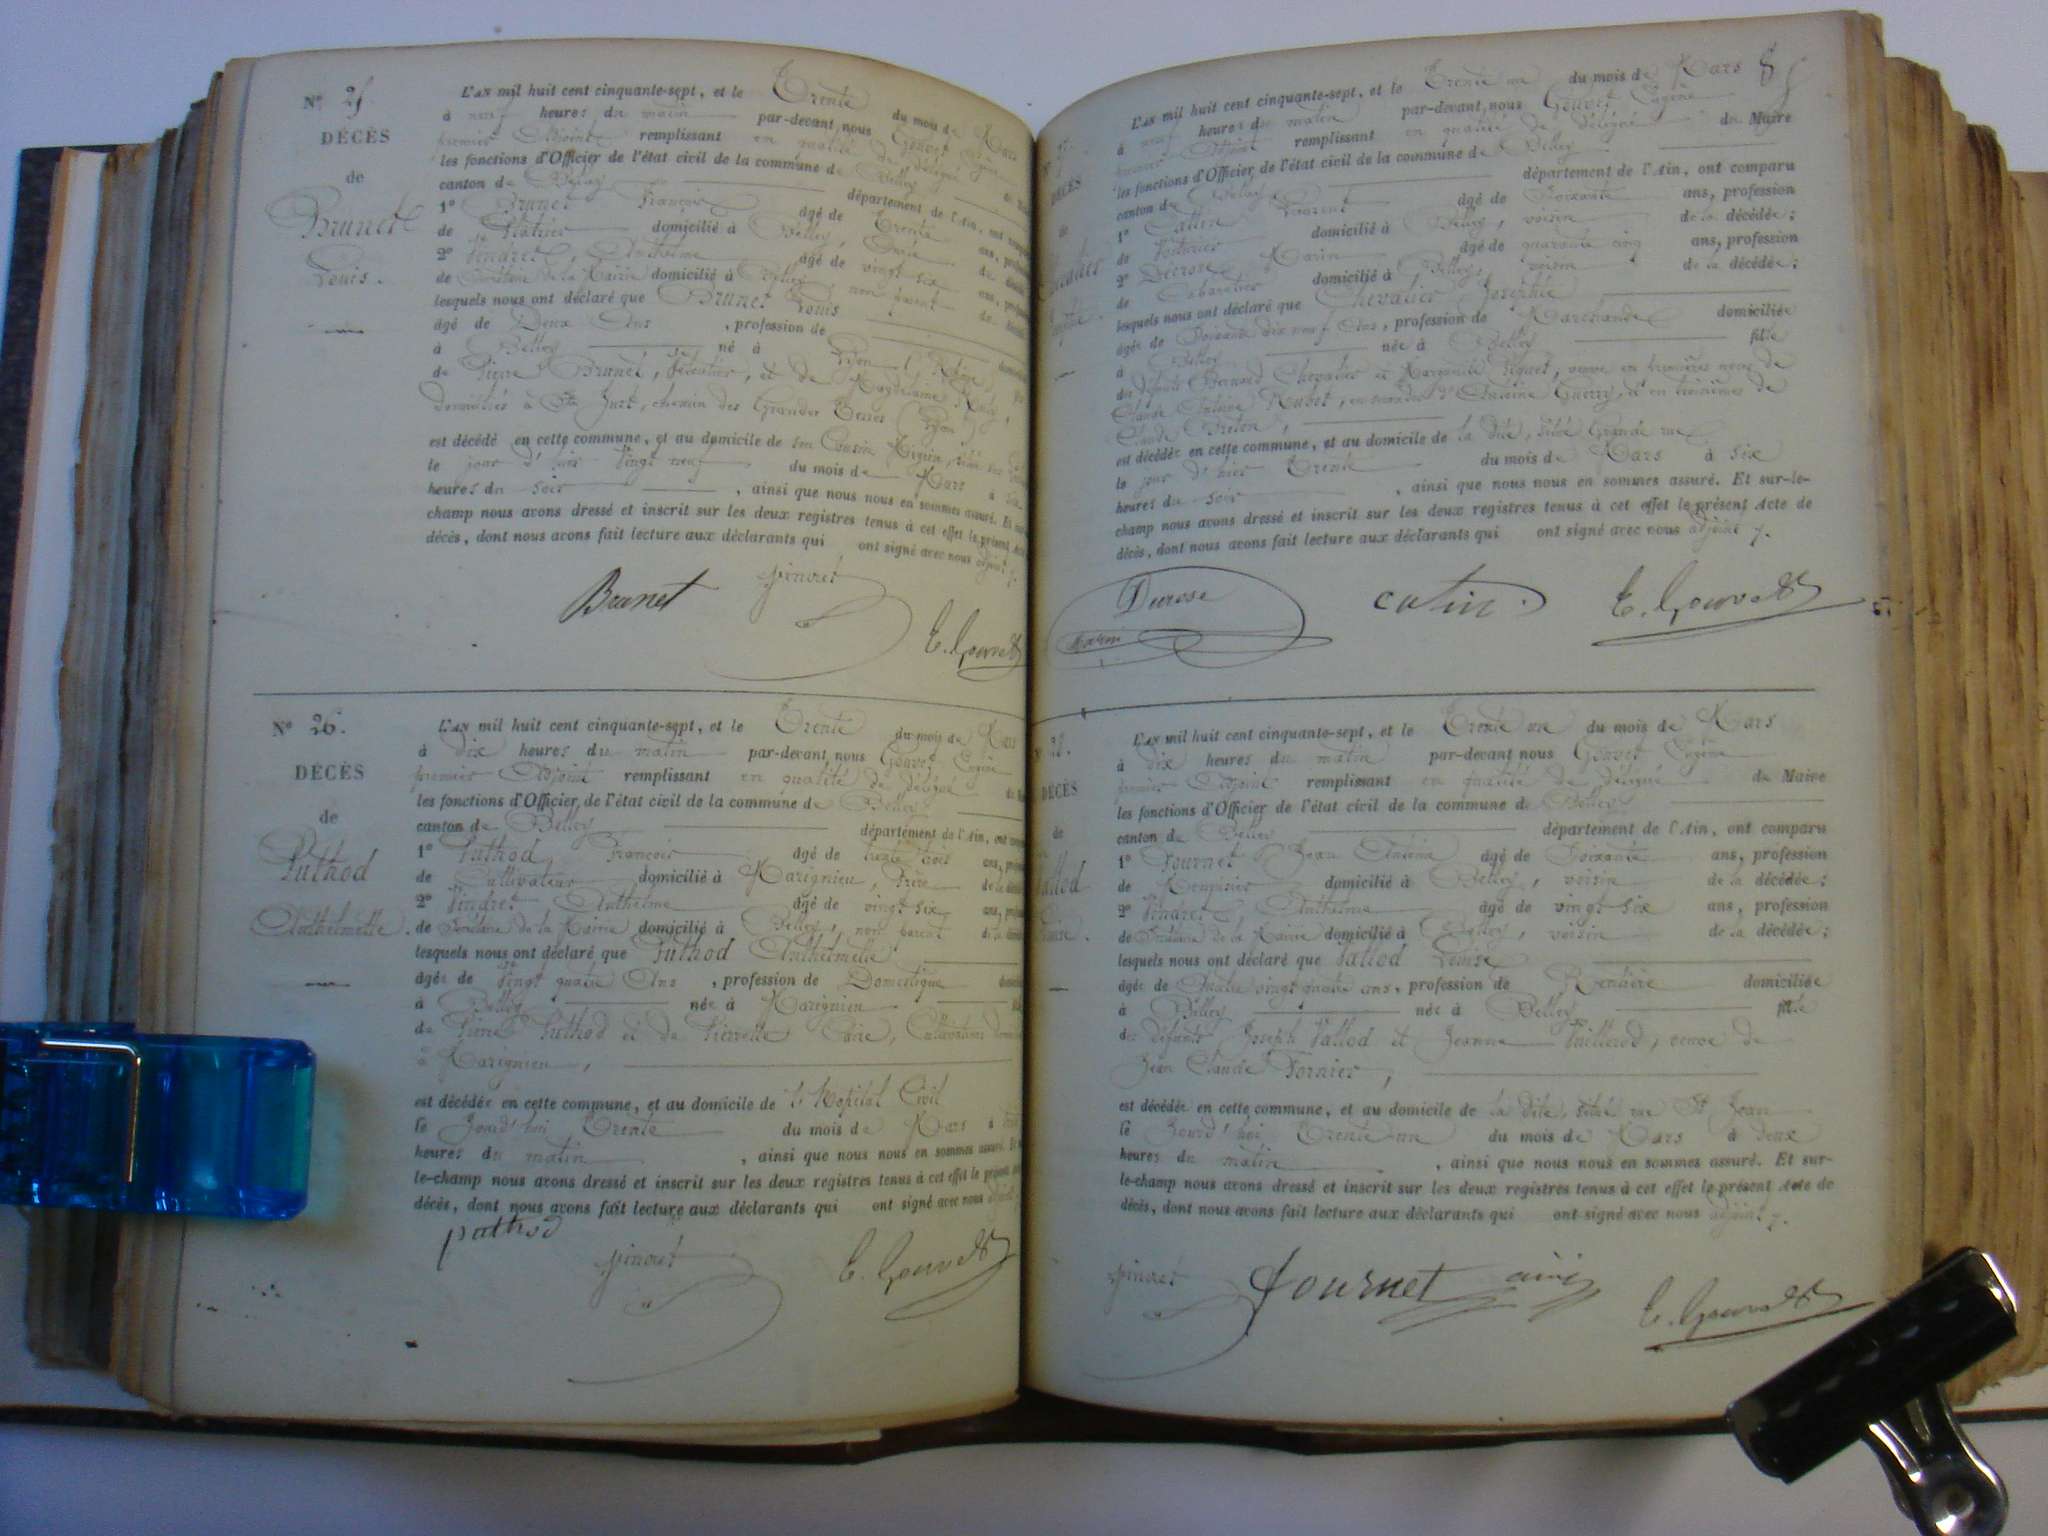 N° 25.
DÉCÈS
de
Brunet
Louis.
L'AN mil huit cent cinquante-sept, et le Trente du mois de Mars
à neuf heures du matin par-devant nous Gouvet Eugène
premier Adjoint remplissant en qualité de délégué
les fonctions d'Officier de l'état civil de la commune de Belley
canton de Belley département de l'Ain, ont
1° Brunet François âgé de Trente ans,
de domicilié à Belley,
2° Pindret Anthelme âgé de vingt six ans,
de Secrétaire de la Mairie domicilié à Belley, non parent de
lesquels nous ont déclaré que Brunet Louis
âgé de Deux Ans , profession de
à Belley né à Lyon (Rhône)
de Pierre Brunet, et de Magdelaine
domiciliés à St Just, chemin des Grandes Terres (Lyon)
est décédé en cette commune, et au domicile de son Cousin
le jour d'hier vingt neuf du mois de Mars à
heures du soir , ainsi que nous nous en sommes assuré. Et
champ nous avons dressé et inscrit sur les deux registres tenus à cet effet le présent Acte
décès, dont nous avons fait lecture aux déclarants qui ont signé avec nous adjoint
Brunet pindret
E. Gouvet
N° 26.
DÉCÈS
de
Puthod
Anthelmette.
L'AN mil huit cent cinquante-sept, et le Trente du mois de Mars
à dix heures du matin par-devant nous Gouvet Eugène
premier Adjoint remplissant en qualité de délégué
les fonctions d'Officier de l'état civil de la commune de Belley
canton de Belley département de l'Ain, ont
1° Puthod François âgé de trente trois ans,
de Cultivateur domicilié à Marignieu, frère de la
2° Pindret Anthelme âgé de vingt six ans,
de Secrétaire de la Mairie domicilié à Belley, non parent de la
lesquels nous ont déclaré que Puthod Anthelmette
âgée de Vingt quatre Ans , profession de Domestique
à Belley née à Marignieu
de Puthod et de Pierrette Cultivateurs
à Marignieu,
est décédée en cette commune, et au domicile de l'Hopital Civil
le Jourd'hui Trente du mois de Mars à
heures du matin , ainsi que nous nous en sommes assuré. Et
le-champ nous avons dressé et inscrit sur les deux registres tenus à cet effet le présent
décès, dont nous avons fait lecture aux déclarants qui ont signé avec nous
puthod
pindret E. Gouvet
DÉCÈS
de
L'AN mil huit cent cinquante-sept, et le Trente un du mois de Mars
à neuf heures du matin par-devant nous Gouvet Eugène
premier Adjoint remplissant en qualité de délégué du Maire
les fonctions d'Officier de l'état civil de la commune de Belley
canton de Belley département de l'Ain, ont comparu
1° Catin Laurent âgé de Soixante ans, profession
de Voiturier domicilié à Belley, voisin de la décédée;
2° Marin âgé de quarante cinq ans, profession
de Cabaretier domicilié à Belley, voisin de la décédée;
lesquels nous ont déclaré que Chevalier Josephte
âgée de Soixante dix neuf Ans, profession de Marchande domiciliée
à Belley née à Belley fille
des défunts Bernard Chevalier et Marguerite veuve en premières noces de
Claude Antoine en secondes d'Antoine Guerry, et en troisièmes de
Claude
est décédée en cette commune, et au domicile de la dite, situé Grande rue
le jour d'hier Trente du mois de Mars à six
heures du soir , ainsi que nous nous en sommes assuré. Et sur-le-
champ nous avons dressé et inscrit sur les deux registres tenus à cet effet le présent Acte de
décès, dont nous avons fait lecture aux déclarants qui ont signé avec nous adjoint
Marin catin E. Gouvet
DÉCÈS
de
L'AN mil huit cent cinquante-sept, et le Trente un du mois de Mars
à dix heures du matin par-devant nous Gouvet Eugène
premier Adjoint remplissant en qualité de délégué du Maire
les fonctions d'Officier de l'état civil de la commune de Belley
canton de Belley département de l'Ain, ont comparu
1° Fournet Jean Antoine âgé de Soixante ans, profession
de domicilié à Belley, voisin de la décédée;
2° Pindret Anthelme âgé de vingt six ans, profession
de Secrétaire de la Mairie domicilié à Belley, voisin de la décédée;
lesquels nous ont déclaré que Vallod Louise
âgée de Quatre vingt quatre ans, profession de Rentière domiciliée
à Belley née à Belley fille
des défunts Joseph Vallod et Jeanne veuve de
Jean Claude Fornier,
est décédée en cette commune, et au domicile de la dite, situé rue St Jean
le Jourd'hui Trente un du mois de Mars à deux
heures du matin , ainsi que nous nous en sommes assuré. Et sur-
le-champ nous avons dressé et inscrit sur les deux registres tenus à cet effet le présent Acte de
décès, dont nous avons fait lecture aux déclarants qui ont signé avec nous adjoint
pindret fournet ainé
E. Gouvet